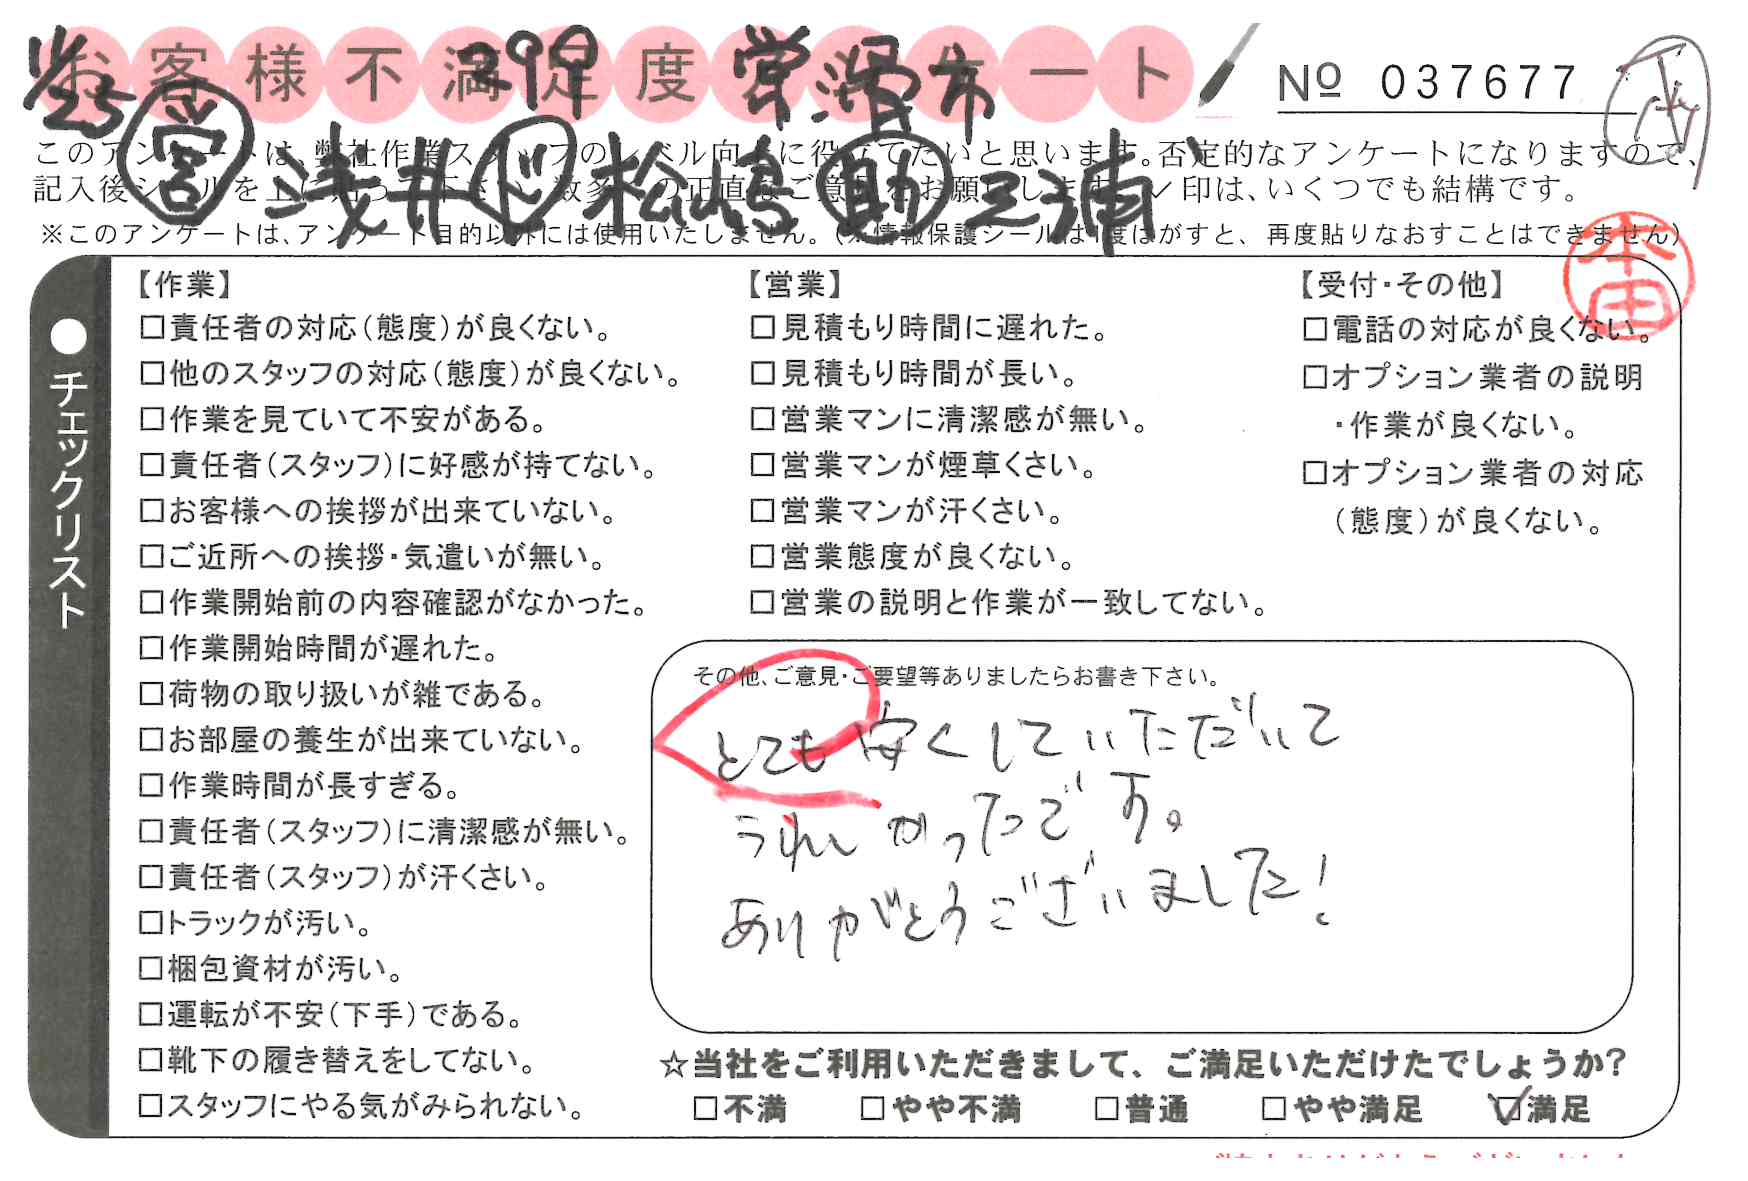 お客様不満足度アンケート
№ 037677
常滑市
営 浅井 ド 松嶋 助 三浦
このアンケートは、弊社作業スタッフのレベル向上に役立てたいと思います。否定的なアンケートになりますので、
記入後シールを上に貼って下さい。数多くの正直なご意見をお願いします。✓印は、いくつでも結構です。
※このアンケートは、アンケート目的以外には使用いたしません。(※情報保護シールは1度はがすと、再度貼りなおすことはできません)
本田
●チェックリスト
【作業】
□責任者の対応(態度)が良くない。
□他のスタッフの対応(態度)が良くない。
□作業を見ていて不安がある。
□責任者(スタッフ)に好感が持てない。
□お客様への挨拶が出来ていない。
□ご近所への挨拶・気遣いが無い。
□作業開始前の内容確認がなかった。
□作業開始時間が遅れた。
□荷物の取り扱いが雑である。
□お部屋の養生が出来ていない。
□作業時間が長すぎる。
□責任者(スタッフ)に清潔感が無い。
□責任者(スタッフ)が汗くさい。
□トラックが汚い。
□梱包資材が汚い。
□運転が不安(下手)である。
□靴下の履き替えをしてない。
□スタッフにやる気がみられない。
【営業】
□見積もり時間に遅れた。
□見積もり時間が長い。
□営業マンに清潔感が無い。
□営業マンが煙草くさい。
□営業マンが汗くさい。
□営業態度が良くない。
□営業の説明と作業が一致してない。
【受付・その他】
□電話の対応が良くない。
□オプション業者の説明
・作業が良くない。
□オプション業者の対応
(態度)が良くない。
その他、ご意見・ご要望等ありましたらお書き下さい。
とても安くしていただいて
うれしかったです。
ありがとうございました!
☆当社をご利用いただきまして、ご満足いただけたでしょうか?
□不満 □やや不満 □普通 □やや満足 ☑満足